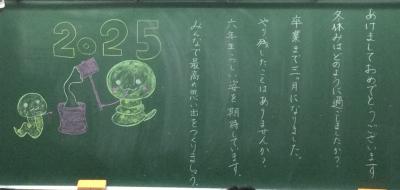 2025
あけましておめでとうございます
冬休みはどのように過ごしましたか?
卒業まで三ヶ月になりました。
やり残したことはありませんか?
六年生らしい姿を期待しています。
みんなで最高の思い出をつくりましょう。